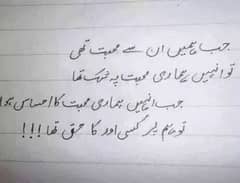 جب ہمیں ان سے محبت تھی
تو انہیں ہماری محبت پہ شک تھا
جب انہیں ہماری محبت کا احساس ہوا
تو ہم پر کسی اور کا حق تھا!!!